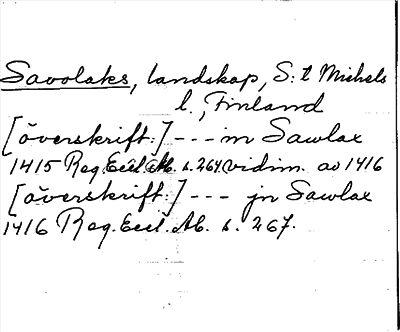 Savolaks, landskap, S:t Michels
l., Finland
[överskrift:] --- in Sawlax
1415 Reg. Eccl. Ab. s. 264. vidim. av 1416
[överskrift:] --- jn Sawlax
1416 Reg. Eccl. Ab. s. 267.